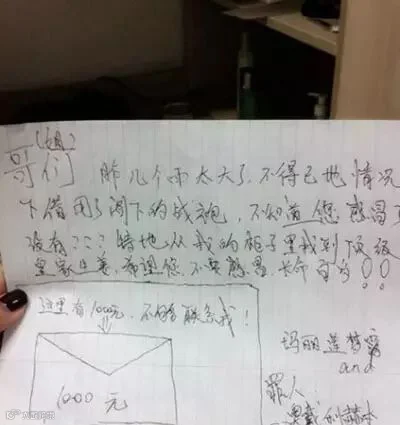 (姐)
哥们 昨儿个雨太大了,不得已地情况
下借用了阁下的战袍,不知道您感冒了
没有???特地从我的柜子里找到顶级
皇家生姜,希望您不要感冒,长命百岁!!
这里有1000元,不够联系我!
1000 元
玛丽莲梦露
and
罪人